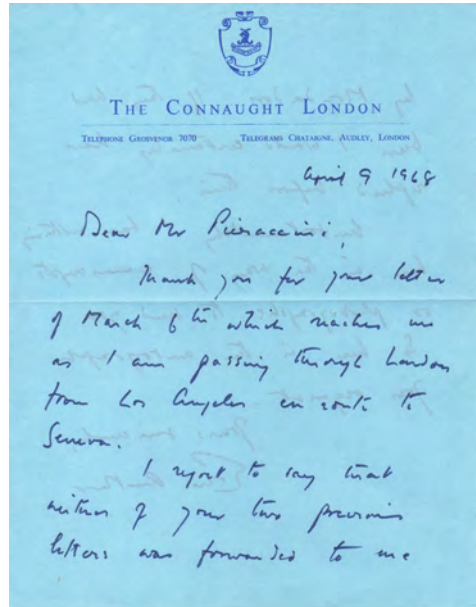 THE CONNAUGHT LONDON
TELEPHONE GROSVENOR 7070 TELEGRAMS CHATAIGNE, AUDLEY, LONDON
April 9 1968
Dear Mr Pieraccini,
Thank you for your letter
of March 6th which reaches me
as I am passing through London
from Los Angeles en route to
Geneva.
I regret to say that
neither of your two previous
letters was forwarded to me